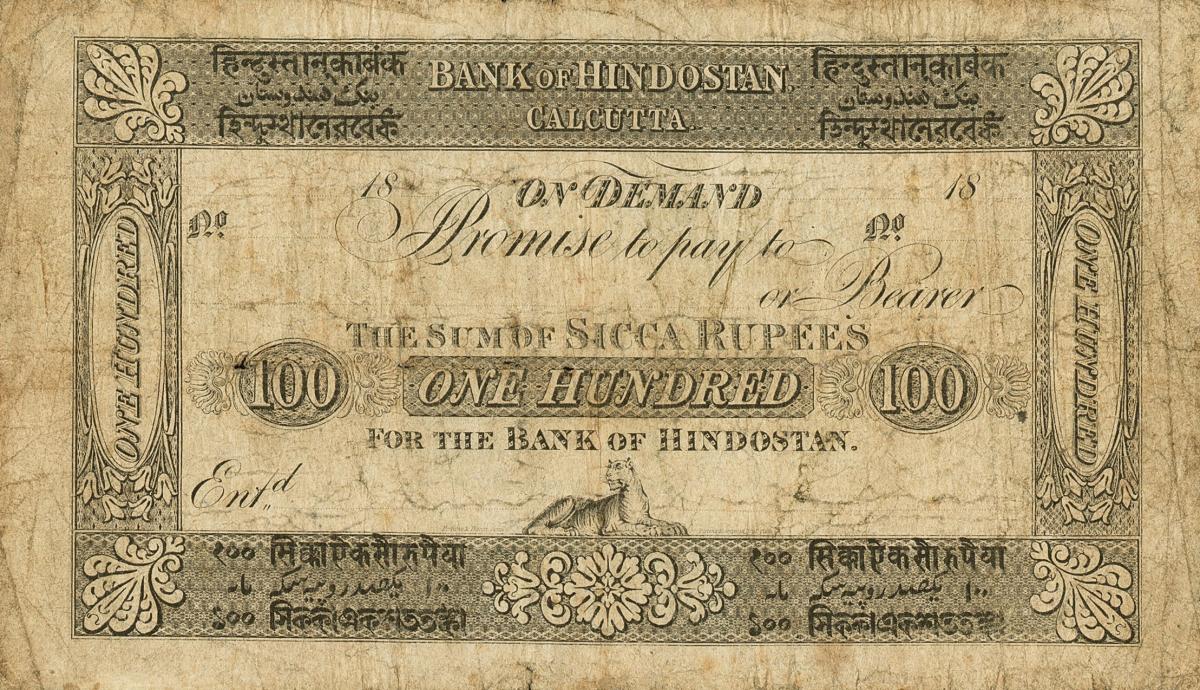 हिन्दुस्तानकाबंक
بنک هندوستان
BANK OF HINDOSTAN,
CALCUTTA.
हिन्दुस्तानकाबंक
بنک هندوستان
18
ON DEMAND
18
No
Promise to pay to
No
or Bearer
THE SUM OF SICCA RUPEES
100
ONE HUNDRED
100
FOR THE BANK OF HINDOSTAN.
Ent.d
ONE HUNDRED
ONE HUNDRED
१०० सिक्काऐकसौरुपैया
१०० सिक्काऐकसौरुपैया